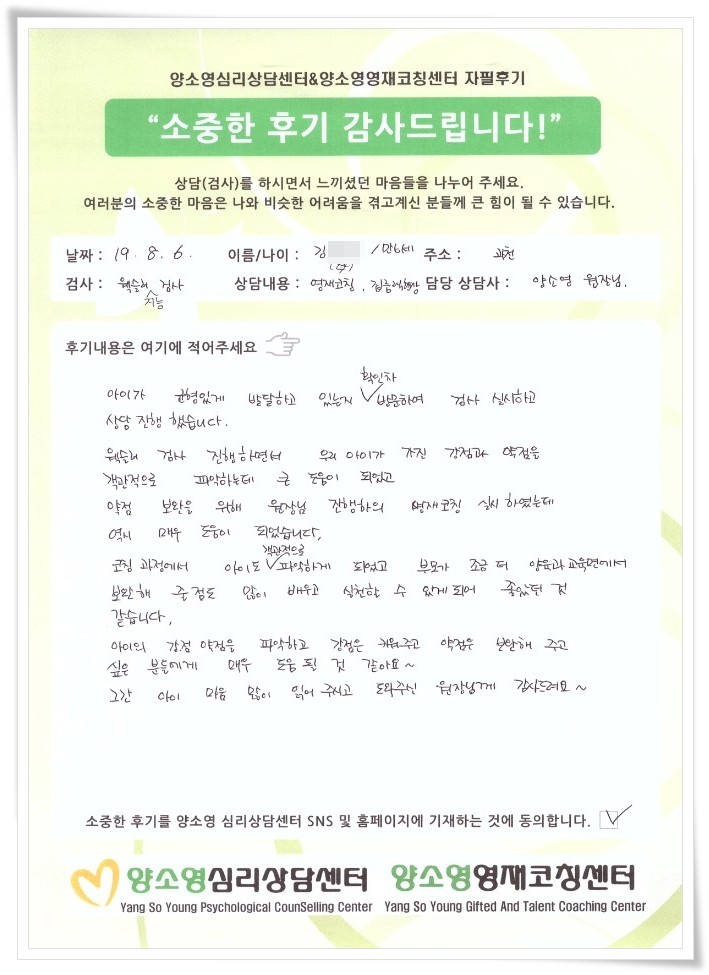 양소영심리상담센터&양소영영재코칭센터 자필후기
“소중한 후기 감사드립니다!”
상담(검사)를 하시면서 느끼셨던 마음들을 나누어 주세요.
여러분의 소중한 마음은 나와 비슷한 어려움을 겪고계신 분들께 큰 힘이 될 수 있습니다.
날짜 : 19. 8. 6. 이름/나이 : 김 /만6세 주소 : 과천
검사 : 웩슬러 지능 검사 상담내용 : 영재코칭, 담당 상담사 : 양소영 원장님.
후기내용은 여기에 적어주세요
아이가 균형있게 발달하고 있는지 확인차 방문하여 검사 실시하고
상담 진행 했습니다.
웩슬러 검사 진행하면서 우리 아이가 가진 강점과 약점을
객관적으로 파악하는데 큰 도움이 되었고
약점 보완을 위해 원장님 진행하의 영재코칭 실시 하였는데
역시 매우 도움이 되었습니다.
코칭 과정에서 아이도 객관적으로 파악하게 되었고 부모가 조금 더 양육과 교육면에서
보완해 줄 점도 많이 배우고 실천할 수 있게 되어 좋았던 것
같습니다.
아이의 강점 약점을 파악하고 강점은 키워주고 약점은 보완해 주고
싶은 분들에게 매우 도움 될 것 같아요~
그간 아이 마음 많이 읽어 주시고 도와주신 원장님께 감사드려요~
소중한 후기를 양소영 심리상담센터 SNS 및 홈페이지에 기재하는 것에 동의합니다.
양소영심리상담센터 양소영영재코칭센터
Yang So Young Psychological CounSelling Center Yang So Young Gifted And Talent Coaching Center